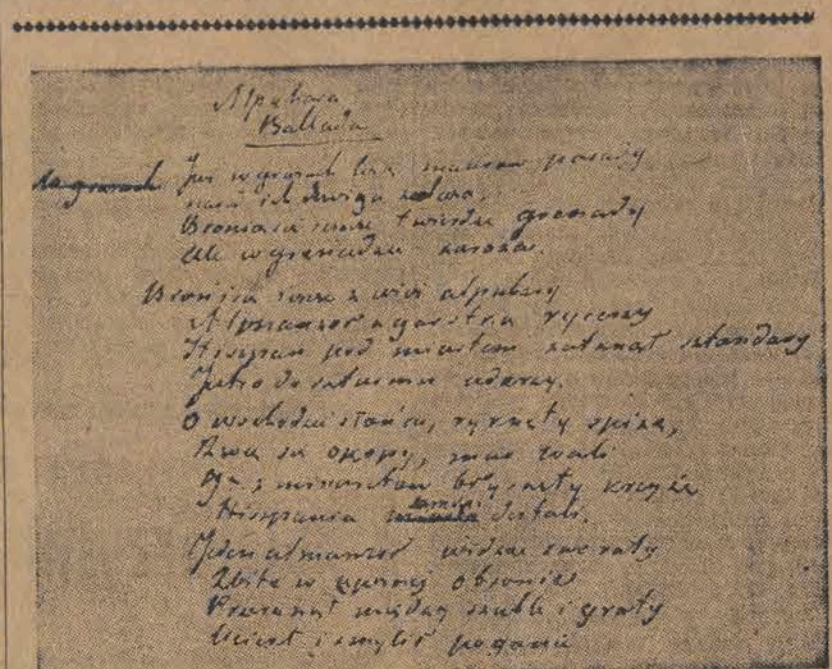 Alpuhara
Ballada
Na gruzach Już w gruzach leżą maurow posady
naród ich dzwiga żelaza,
Bronią się jeszcze twierdze grenady
Ale w grenadzie zaraza.
Broni się jeszcze z wież alpuhary
Almanzor z garstką rycerzy
Hiszpan pod miastem zatknął sztandary
Jutro do szturmu uderzy.
O wschodzie słońca, ryknęły spiże,
Rwą się okopy, mur wali
Już z minaretów błysnęły krzyże
Hiszpanie zamku dostali.
Jeden almanzor widząc swe roty
Zbite w upornej obronie
Przerznął się między szable i groty
Uciekł i zmylił pogonie